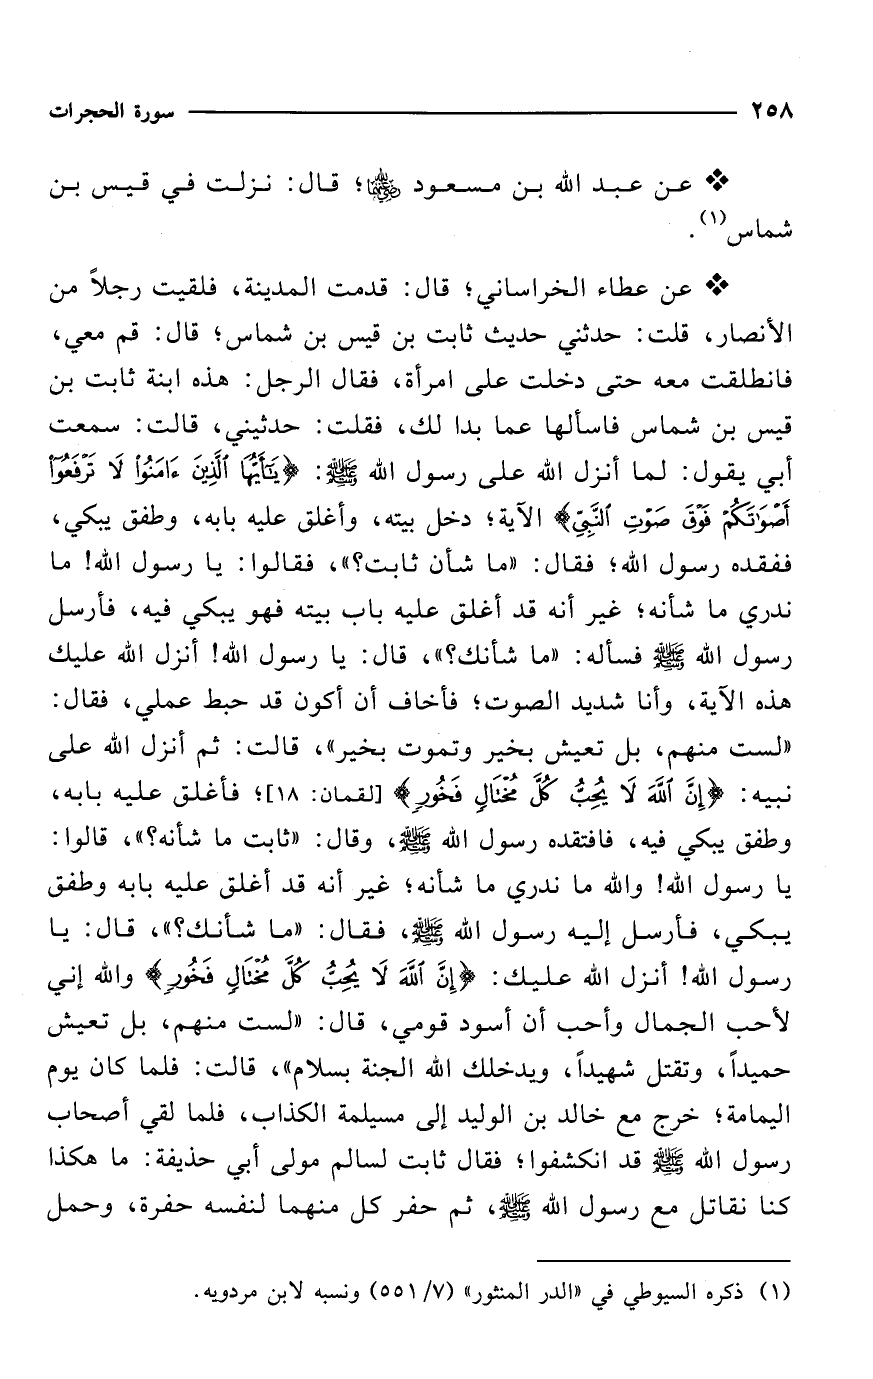 ٢٥٨ سورة الحجرات
❖ عن عبد الله بن مسعود رضي الله عنه؛ قال: نزلت في قيس بن
شماس(١).
❖ عن عطاء الخراساني؛ قال: قدمت المدينة، فلقيت رجلاً من
الأنصار، قلت: حدثني حديث ثابت بن قيس بن شماس؛ قال: قم معي،
فانطلقت معه حتى دخلت على امرأة، فقال الرجل: هذه ابنة ثابت بن
قيس بن شماس فاسألها عما بدا لك، فقلت: حدثيني، قالت: سمعت
أبي يقول: لما أنزل الله على رسول الله ﷺ: ﴿يَٰٓأَيُّهَا ٱلَّذِينَ ءَامَنُوا۟ لَا تَرْفَعُوٓا۟
أَصْوَٰتَكُمْ فَوْقَ صَوْتِ ٱلنَّبِىِّ﴾ الآية؛ دخل بيته، وأغلق عليه بابه، وطفق يبكي،
ففقده رسول الله؛ فقال: «ما شأن ثابت؟»، فقالوا: يا رسول الله! ما
ندري ما شأنه؛ غير أنه قد أغلق عليه باب بيته فهو يبكي فيه، فأرسل
رسول الله ﷺ فسأله: «ما شأنك؟»، قال: يا رسول الله! أنزل الله عليك
هذه الآية، وأنا شديد الصوت؛ فأخاف أن أكون قد حبط عملي، فقال:
«لست منهم، بل تعيش بخير وتموت بخير»، قالت: ثم أنزل الله على
نبيه: ﴿إِنَّ ٱللَّهَ لَا يُحِبُّ كُلَّ مُخْتَالٍ فَخُورٍ﴾ [لقمان: ١٨]؛ فأغلق عليه بابه،
وطفق يبكي فيه، فافتقده رسول الله ﷺ، وقال: «ثابت ما شأنه؟»، قالوا:
يا رسول الله! والله ما ندري ما شأنه؛ غير أنه قد أغلق عليه بابه وطفق
يبكي، فأرسل إليه رسول الله ﷺ، فقال: «ما شأنك؟»، قال: يا
رسول الله! أنزل الله عليك: ﴿إِنَّ ٱللَّهَ لَا يُحِبُّ كُلَّ مُخْتَالٍ فَخُورٍ﴾ والله إني
لأحب الجمال وأحب أن أسود قومي، قال: «لست منهم، بل تعيش
حميداً، وتقتل شهيداً، ويدخلك الله الجنة بسلام»، قالت: فلما كان يوم
اليمامة؛ خرج مع خالد بن الوليد إلى مسيلمة الكذاب، فلما لقي أصحاب
رسول الله ﷺ قد انكشفوا؛ فقال ثابت لسالم مولى أبي حذيفة: ما هكذا
كنا نقاتل مع رسول الله ﷺ، ثم حفر كل منهما لنفسه حفرة، وحمل
(١) ذكره السيوطي في «الدر المنثور» (٧/ ٥٥١) ونسبه لابن مردويه.